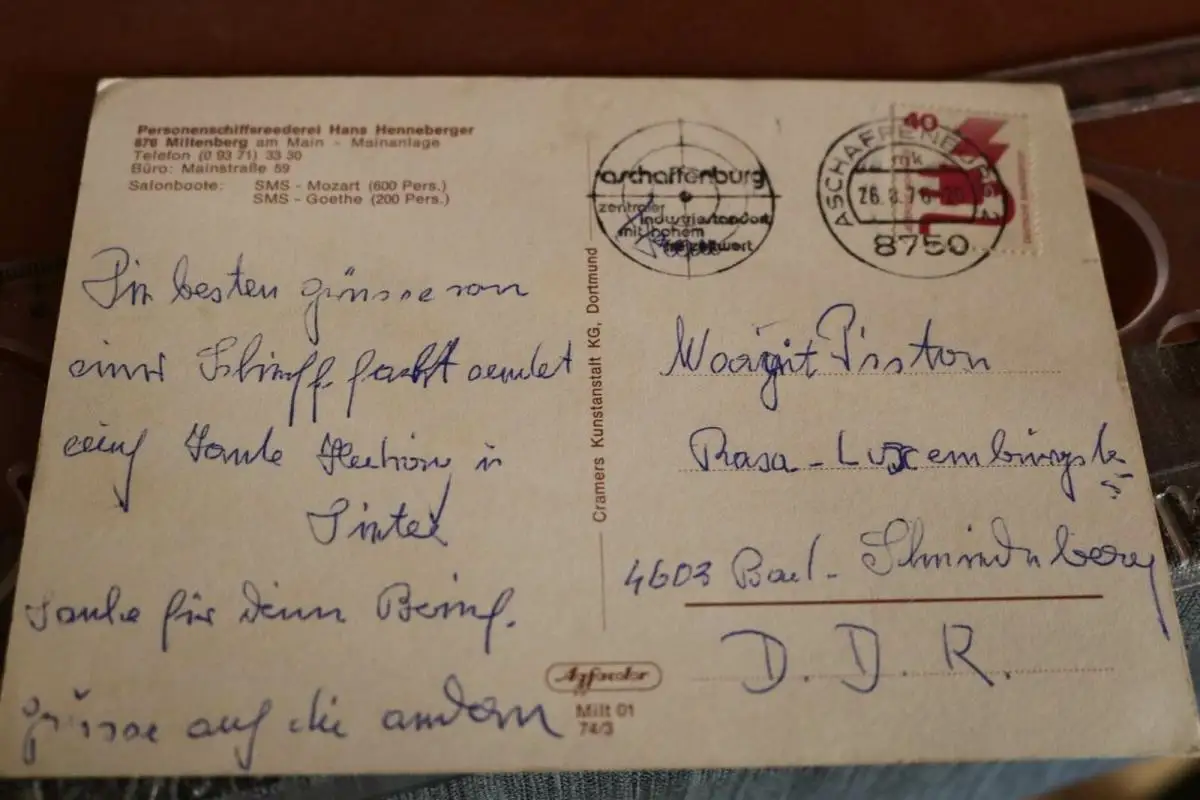 Personenschiffsreederei Hans Henneberger
876 Miltenberg am Main - Mainanlage
Telefon (0 93 71) 33 30
Büro: Mainstraße 59
Salonboote: SMS - Mozart (600 Pers.)
SMS - Goethe (200 Pers.)
Die besten grüsse von
einer Schiff fahrt sendet
Tante in
Tante für Brief.
grüsse auf die andern
Cramers Kunstanstalt KG, Dortmund
Milt 01
74/3
aschaffenburg
zentraler
industriestandort
mit hohem
freizeitwert
ASCHAFFENBURG 2
mk
26.8.76
8750
40
Margit Piston
Rosa-Luxemburgstr
4603 Bad-Schmiedeberg
D.D.R.